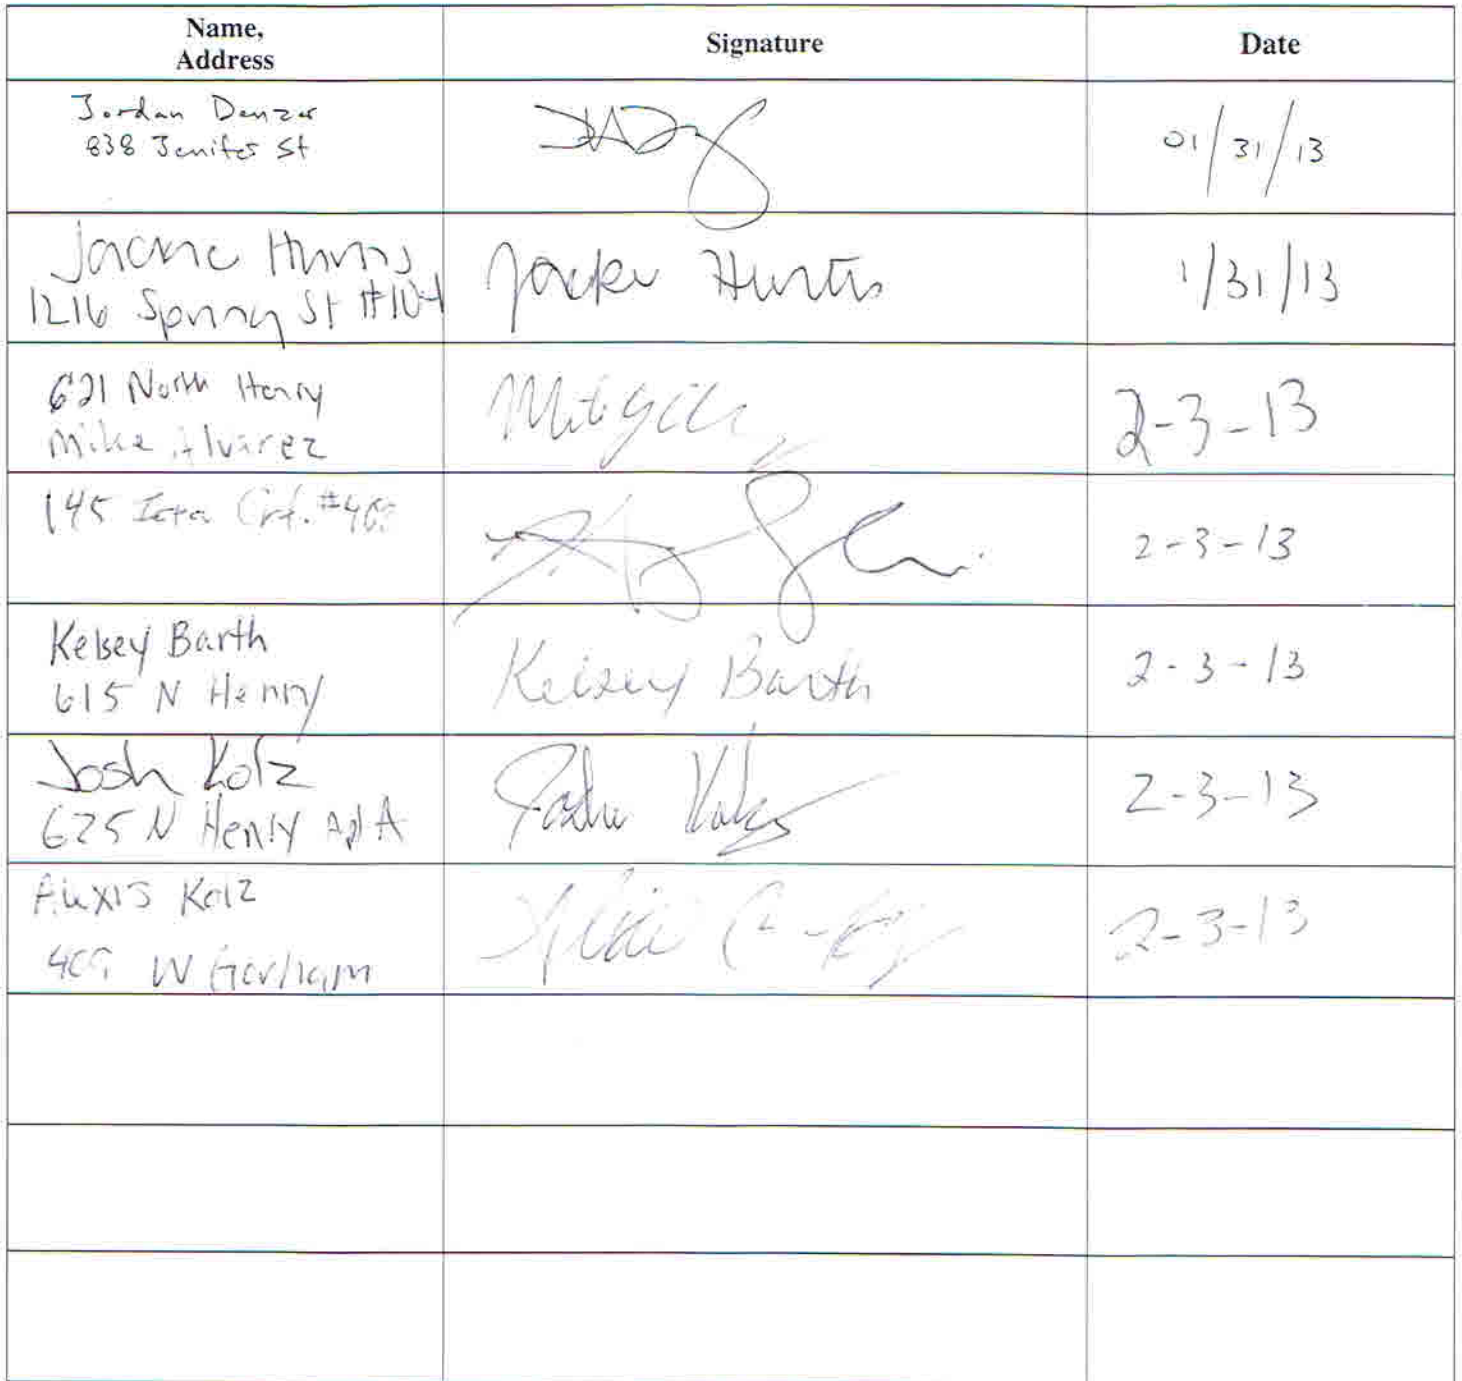 Name,
Address
Signature
Date
Jordan Denzer
838 Jenifer St
01/31/13
1216 Spring St #104
Jackie
1/31/13
621 North Henry
Mike Alvarez
2-3-13
145 Iota Crt. #
2-3-13
Kelsey Barth
615 N Henry
Kelsey Barth
2-3-13
Josh Kolz
625 N Henry Apt A
Kolz
2-3-13
Alexis Kolz
409 W Gorham
2-3-13